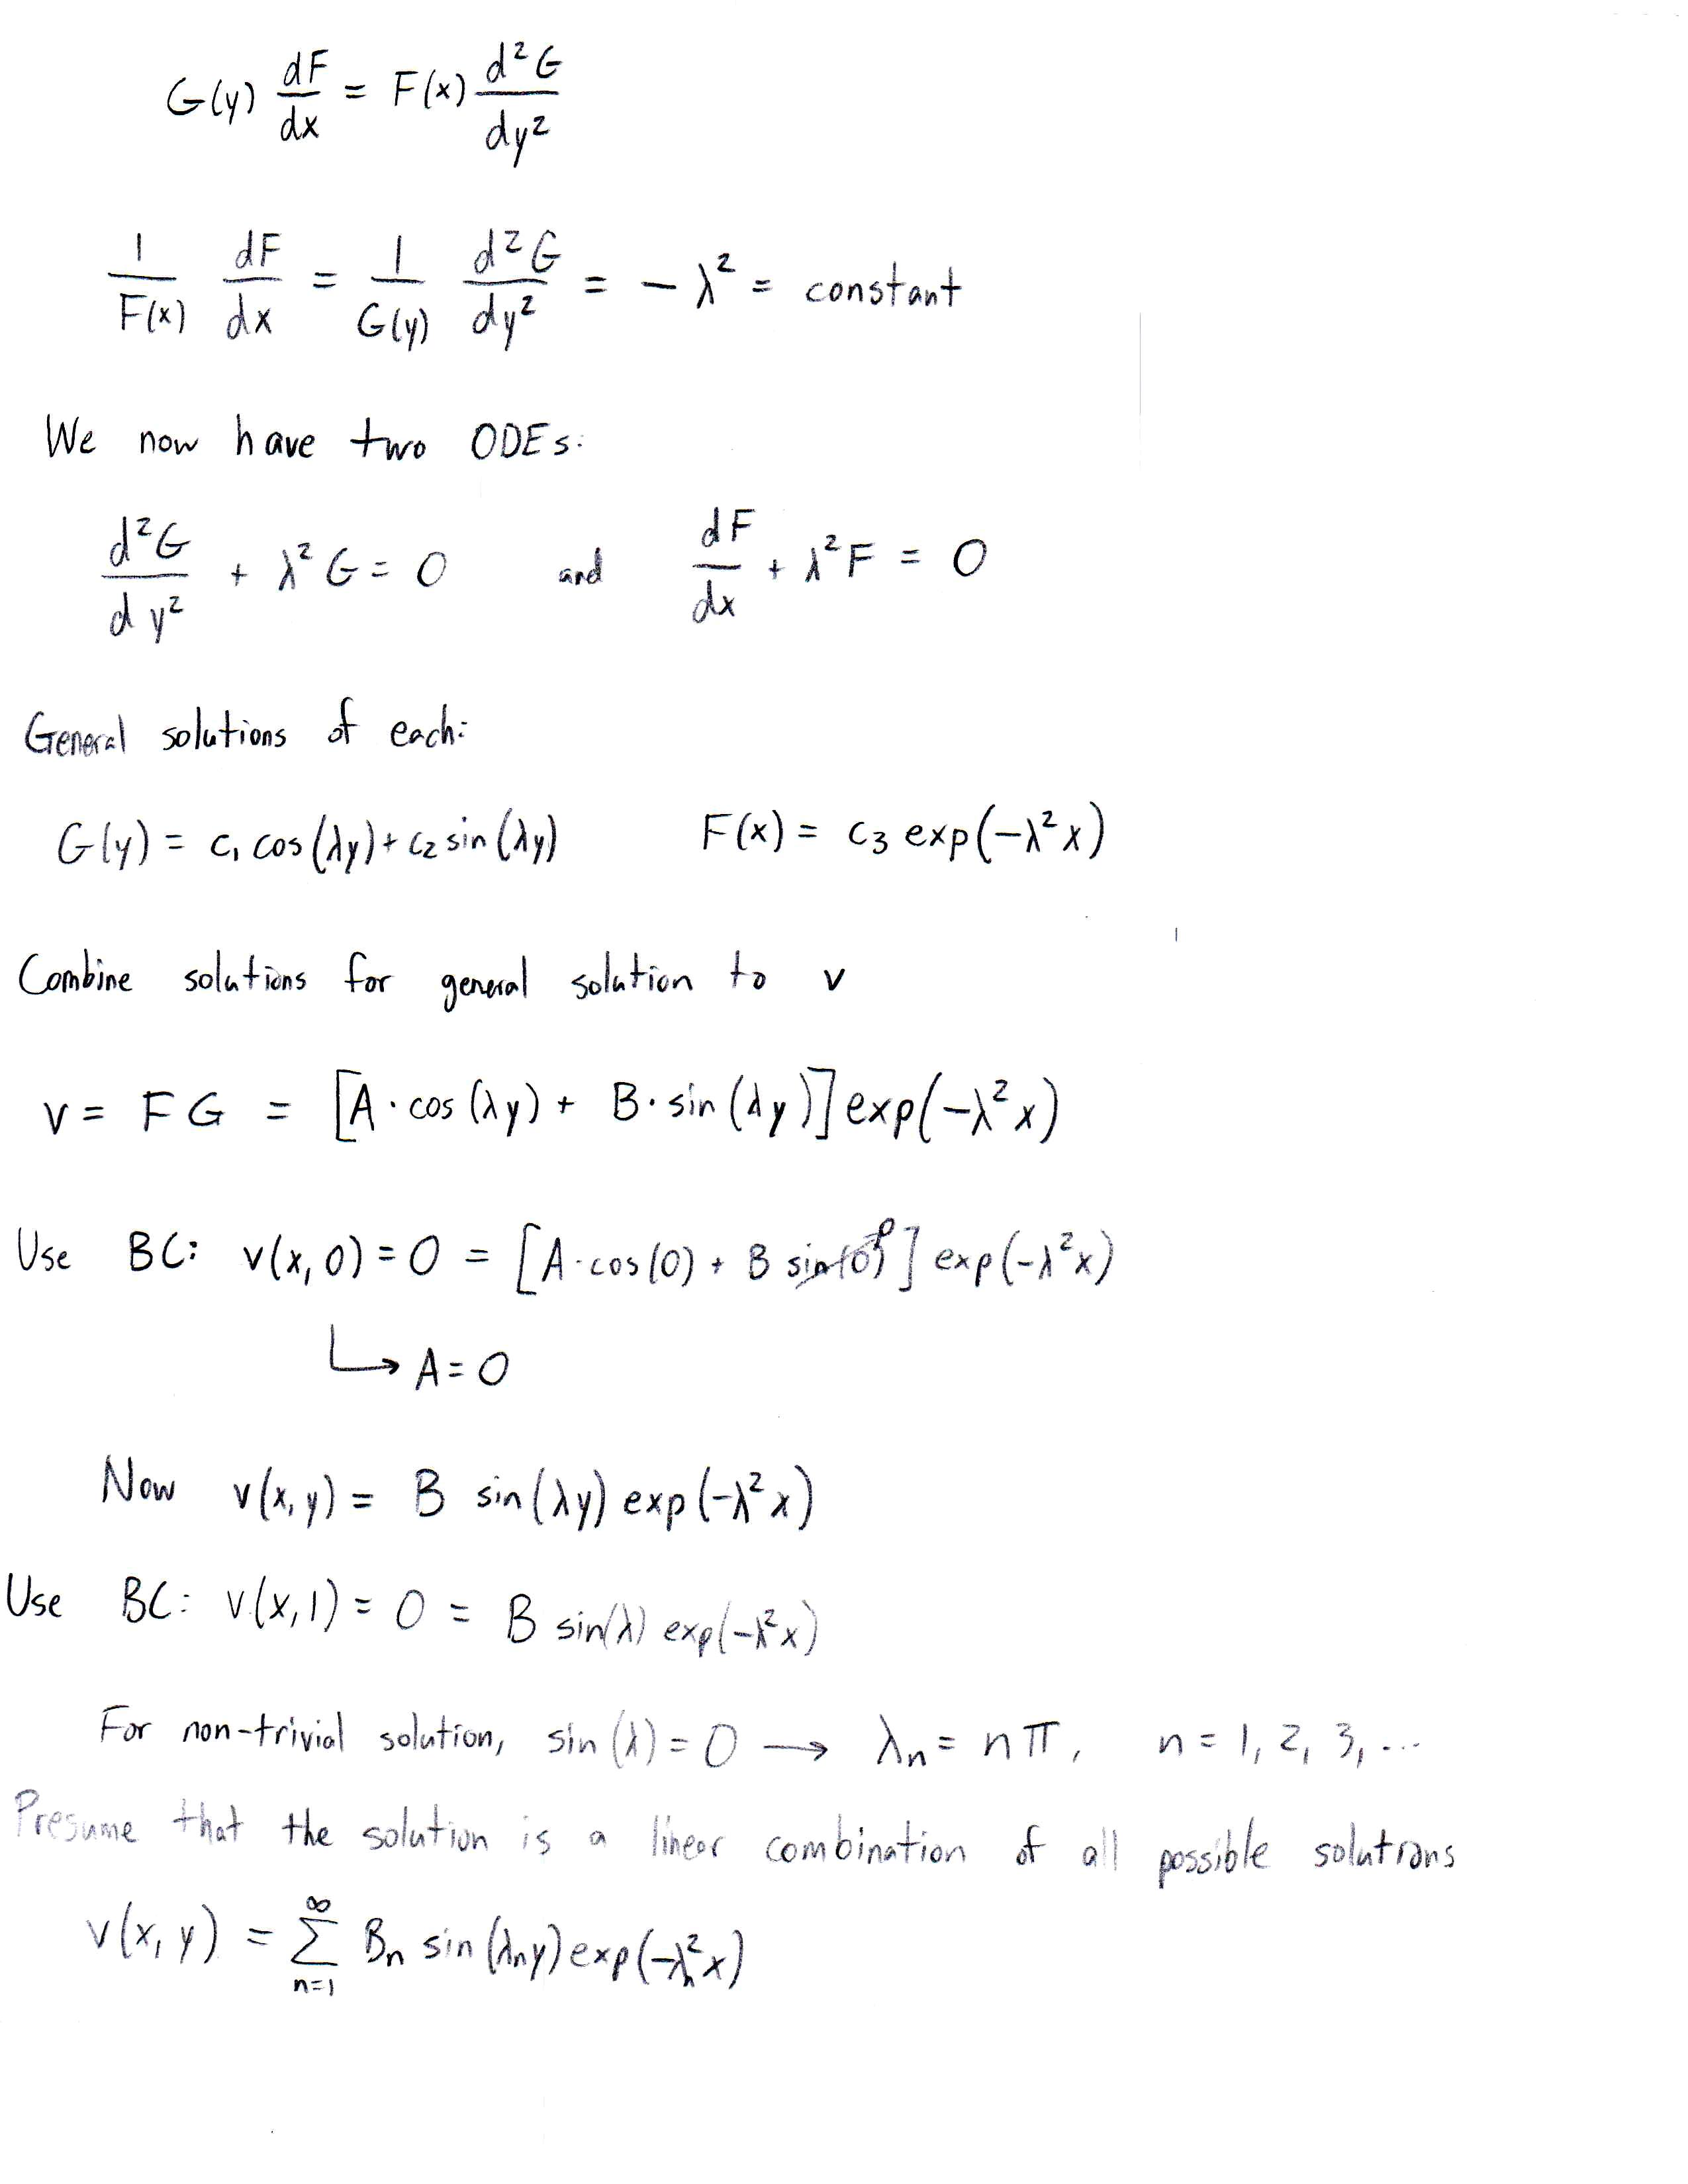 G(y) dF/dx = F(x) d²G/dy²
1/F(x) dF/dx = 1/G(y) d²G/dy² = -λ² = constant
We now have two ODEs:
d²G/dy² + λ²G = 0 and dF/dx + λ²F = 0
General solutions of each:
G(y) = c₁ cos(λy) + c₂ sin(λy) F(x) = c₃ exp(-λ²x)
Combine solutions for general solution to v
v = FG = [A·cos(λy) + B·sin(λy)] exp(-λ²x)
Use BC: v(x,0) = 0 = [A·cos(0) + B sin(0) 0] exp(-λ²x)
↳ A = 0
Now v(x,y) = B sin(λy) exp(-λ²x)
Use BC: v(x,1) = 0 = B sin(λ) exp(-λ²x)
For non-trivial solution, sin(λ) = 0 → λₙ = nπ, n = 1, 2, 3, ...
Presume that the solution is a linear combination of all possible solutions
v(x,y) = ∑ₙ₌₁^∞ Bₙ sin(λₙy) exp(-λₙ²x)